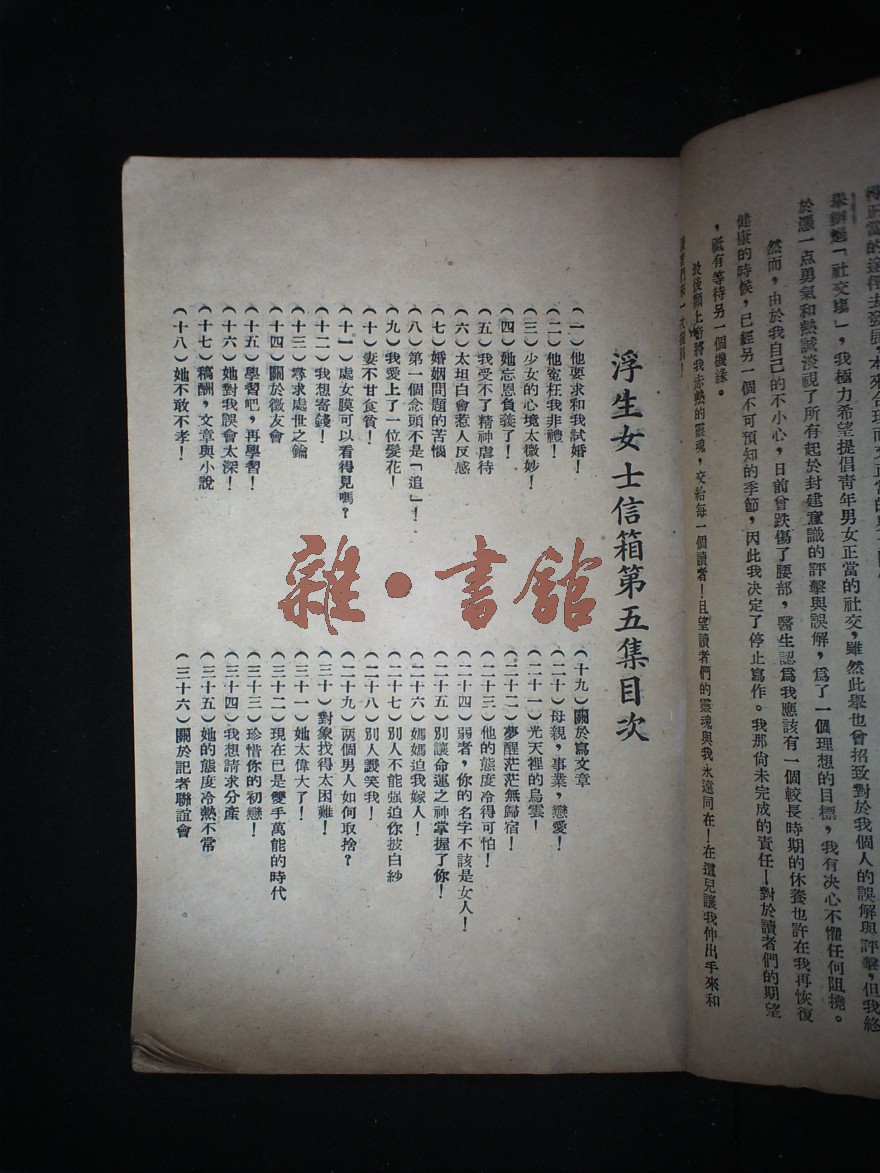 得正當的途徑去發展,本來合理而又正當的
「社交塲」,我極力希望提倡青年男女正當的社交,雖然此舉也曾招致對於我個人的誤解與評擊,但我終
於憑一点勇氣和熱誠淡視了所有起於封建意識的評擊與誤解,爲了一個理想的目標,我有决心不懼任何阻撓。
然而,由於我自己的不小心,日前曾跌傷了腰部,醫生認爲我應該有一個較長時期的休養也許在我再恢復
健康的時候,已經另一個不可預知的季節,因此我决定了停止寫作。我那尙未完成的責任—對於讀者們的期望
,祗有等待另一個機緣。
最後願上帝將我赤熱的靈魂,交給每一個讀者!且望讀者們的靈魂與我永遠同在!在這兒讓我伸出手來和
浮生女士信箱第五集目次
(一)他要求和我試婚!
(二)他寃枉我非禮!
(三)少女的心境太微妙!
(四)她忘恩負義了!
(五)我受不了精神虐待
(六)太坦白會惹人反感
(七)婚姻問題的苦惱
(八)第一個念頭不是「追」!
(九)我愛上了一位髮花!
(十)妻不甘食貧!
(十一)處女膜可以看得見嗎?
(十二)我想寄錢!
(十三)尋求處世之鑰
(十四)關於徵友會
(十五)學習吧,再學習!
(十六)她對我誤會太深!
(十七)稿酬,文章與小說
(十八)她不敢不孝!
(十九)關於寫文章
(二十)母親,事業,戀愛!
(二十一)光天裡的烏雲!
(二十二)夢醒茫茫無歸宿!
(二十三)他的態度冷得可怕!
(二十四)弱者,你的名字不該是女人!
(二十五)別讓命運之神掌握了你!
(二十六)媽媽迫我嫁人!
(二十七)別人不能强迫你披白紗
(二十八)別人譏笑我!
(二十九)兩個男人如何取捨?
(三十)對象找得太困難!
(三十一)她太偉大了!
(三十二)現在已是雙手萬能的時代
(三十三)珍惜你的初戀!
(三十四)我想請求分產
(三十五)她的態度冷熱不常
(三十六)關於記者聯誼會
雜·書舘